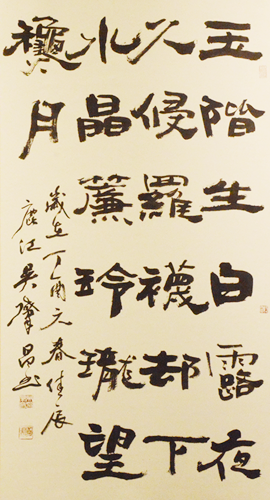 玉階生白露夜
久侵羅襪却下
水晶簾玲瓏望
龝月
歲在丁酉元春佳辰
鹿江吳肇昌書